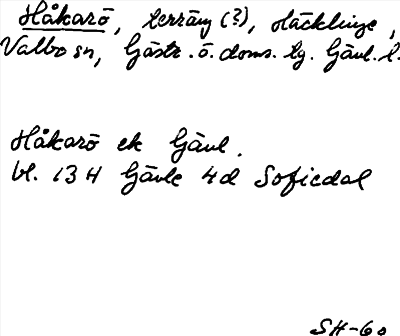 Håkarö, terräng (?), Häcklinge,
Valbo sn, Gästr. ö. doms. tg. Gävl. l.
Håkarö ek Gävl.
bl. 13 H Gävle 4d Sofiedal
SH-60